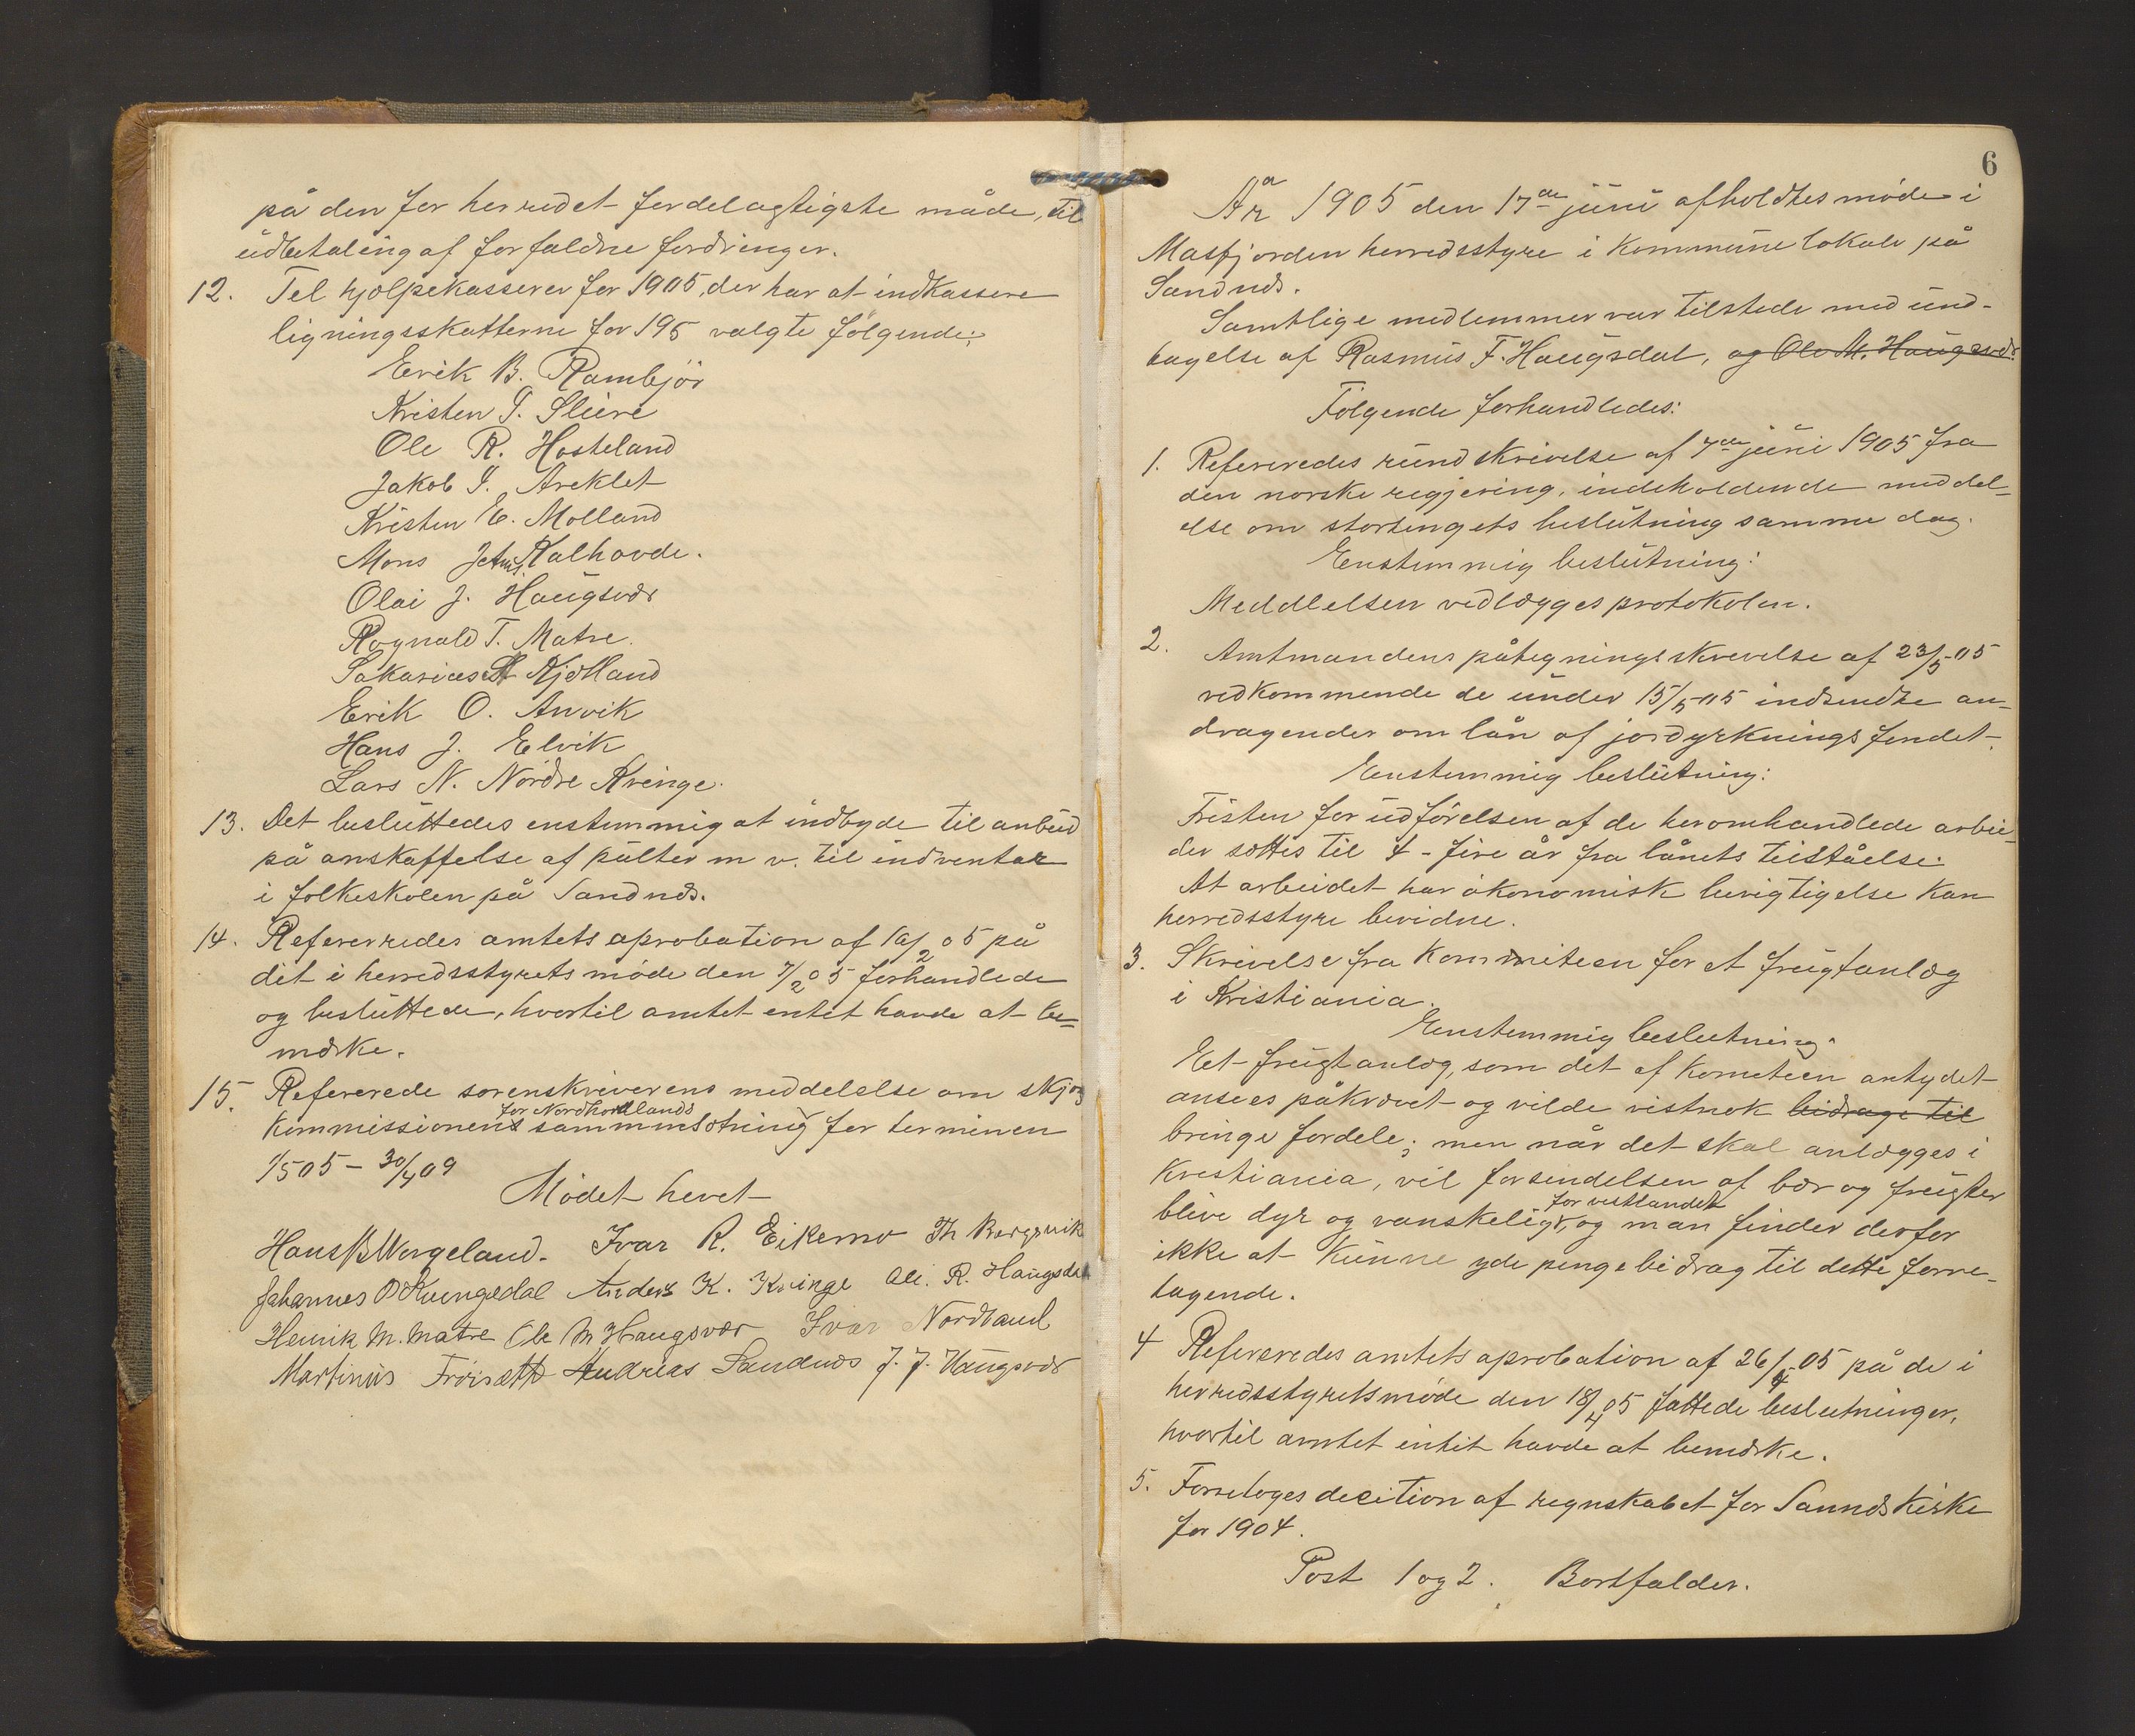 på den for herredet fordelagtigste måde, til
udbetaling af forfaldne fordringer.
12. Til hjælpekasserer for 1905, der har at indkassere
ligningsskatterne for 195 valgte følgende:
Erik B. Rambjør
Kristen T. Sleire
Ole R. Hosteland
Jakob I. Areklet
Kristen E. Molland
Mons Kalhovde.
Olai J. Haugsvær
Rognald T. Matre.
Sakarias Kjetland
Erik O. Anvik
Hans J. Elvik
Lars N. Nordre Kvinge.
13. Det besluttedes enstemmig at indbyde til anbud
på anskaffelse af pulter m v. til indventar
i folkeskolen på Sandnæs.
14. Refererredes amtets aprobation af 16/2 05 på
dét i herredsstyrets møde den 7/2 05 forhandlede
og besluttede, hvortil amtet entet havde at be-
mærke.
15. Refererede sorenskriverens meddelelse om skjøn
for Nordhordlands
kommissionens sammensætning for terminen
1/5 05 – 30/4 09
Mødet hevet
Hans B Wergeland. Ivar R. Eikemo Th Bergsvik
Johannes O Kvingedal Anders K. Kvinge Ole. R. Haugsdal
Henrik M. Matre Ole M Haugsvær Ivar Nordland
Martinus Frøisett Andreas Sandnæs J. J. Haugsvær
6
År 1905 den 17de juni afholdtes møde i
Masfjorden herredsstyre i kommunelokale på
Sandnæs.
Samtlige medlemmer var tilstede med und-
tagelse af Rasmus F. Haugsdal, og Ole M. Haugsvær.
Følgende forhandledes:
1. Refereredes rundskrivelse af 7de juni 1905 fra
den norske regjering, indeholdende meddel-
else om stortingets beslutning samme dag.
Enstemmig beslutning:
Meddlelsen vedlægges protokolen.
2. Amtmandens påtegningsskrevelse af 23/5-05
vedkommende de under 15/5-05 indsendte an-
dragender om lån af jordyrkningsfondet.
Eenstemmig beslutning:
Fristen for udførelsen af de heromhandlede arbei-
der sættes til 4 - fire år fra lånets teiståelse.
At arbeidet har økonomisk berigtigelse kan
herredsstyre bevidne.
3. Skrivelse fra kommiteen for et frugtanlæg
i Kristiania.
Eenstemmig beslutning.
Eet frugtanlæg, som det af kometeen antydet
ansees påkrævet og vilde vistnok bidrage til
bringe fordele; men når det skal anlægges i
Kristiania, vil forsendelsen af bær og frugter
for vestlandet
blive dyr og vanskelig, og man finder derfor
ikke at kunne yde pengebidrag til dette forre-
tagende.
4 Refereredes amtets aprobation af 26/4-05 på de i
herredsstyretsmøde den 18/4 05 fattede beslutninger,
hvortil amtet intit havde at bemærke.
5. Foretoges decition af regnskabet for Sannæs kirke
for 1904.
Post 1 og 2. Bortfalder.